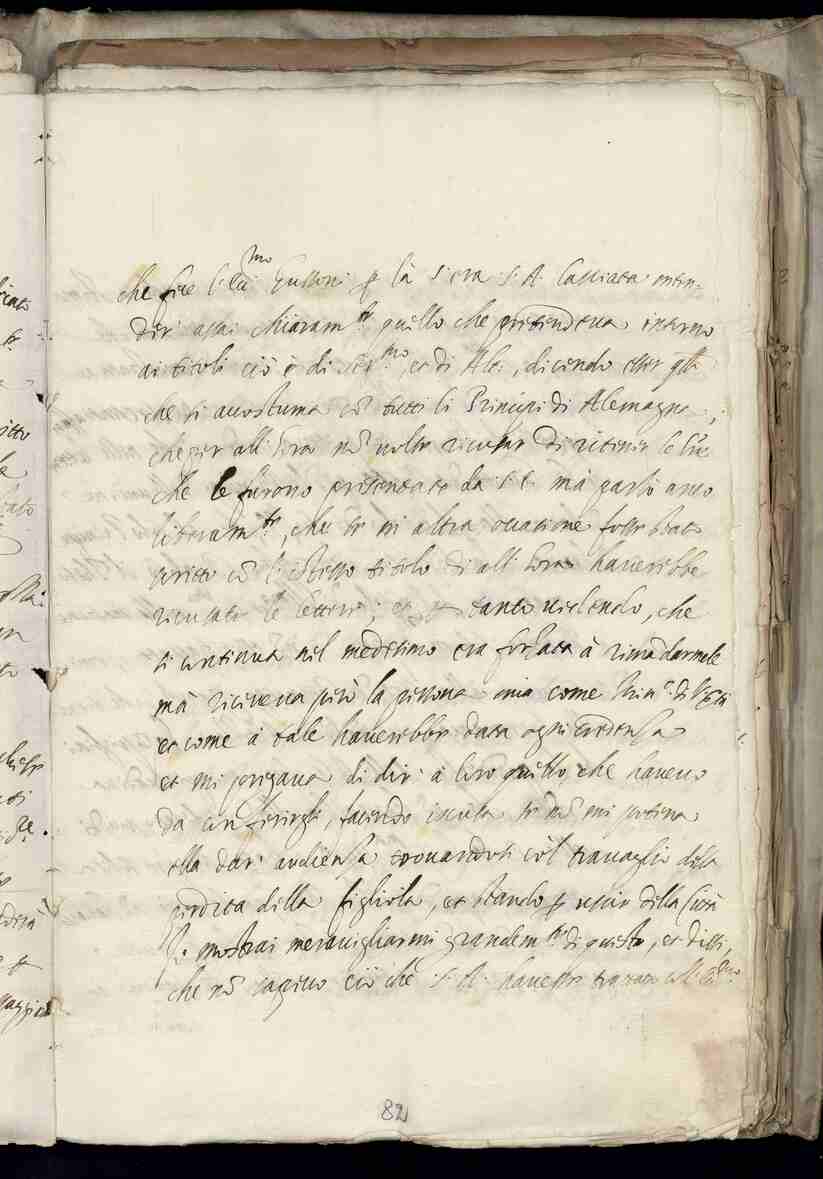 che fece l'Ill.mo Gussoni p. là s'era S. A. lassiata inten=
der assai chiaram.te quello che pretendeva intorno
ai titoli ciò è di Ser.mo, et di Alt., dicendo esser q.llo
che si accostuma cō tutti li Principi di Alemagna;
che per all'hora nō volse ricusar di ricever le l're
che le furono presentate da S. E. mà parlò anco
liberam.te, che se in altra occasione fosse stato
scritto cō l'istesso titolo di all'hora haverebbe
ricusato le lettere; et p. tanto vedendo, che
si continua nel medesimo era forzata à rimādarmele
mà riceveva però la persona mia come Min.o di V. Ser.tà
et come à tale haverebbe data ogni credenza
et mi pregava di dir à loro quello che havevo
da conferirgli, facendo iscusa se nō mi poteva
ella dar audienza trovandosi cō'l travaglio della
perdita della figliola, et stando p. uscir della Città
Io mostrai meravigliarmi grandem.te di questo, et dissi,
che nō sapevo ciò che S. A. havesse trattato coll'
82